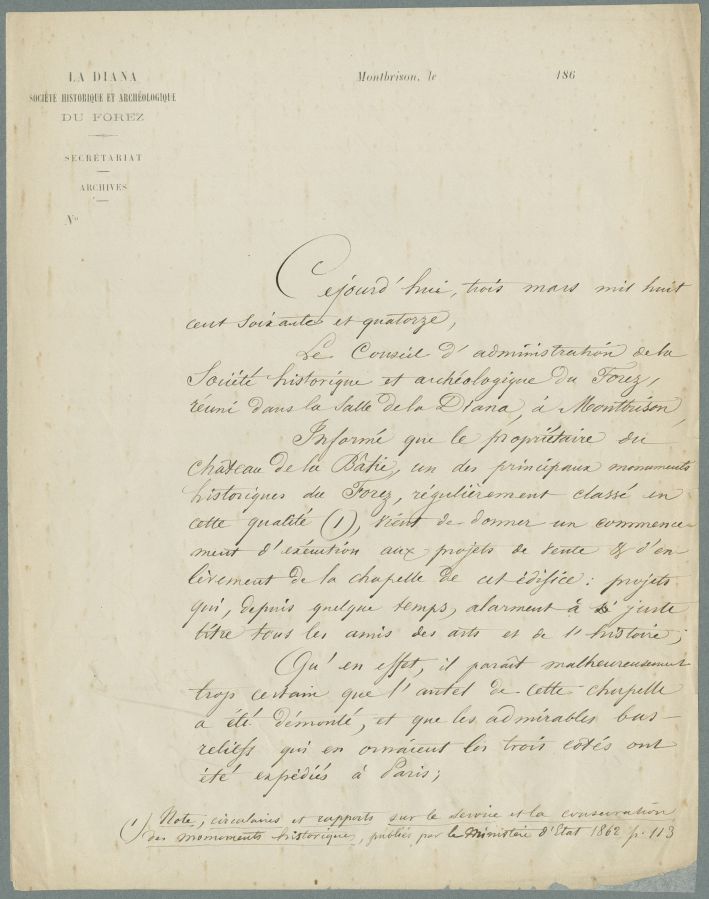 LA DIANA
SOCIÉTÉ HISTORIQUE ET ARCHÉOLOGIQUE
DU FOREZ
SECRÉTARIAT
ARCHIVES
No
Montbrison, le 186
Cejourd'hui, trois mars mil huit
cent soixante et quatorze,
Le Conseil d'administration de la
Société historique et archéologique du Forez,
réuni dans la salle de la Diana, à Montbrison,
Informé que le propriétaire du
château de la Bâtie, un des principaux monuments
historiques du Forez, régulièrement classé en
cette qualité (1), vient de donner un commence-
ment d'exécution aux projets de vente & d'en
lèvement de la chapelle de cet édifice : projets
qui, depuis quelque temps, alarment à juste
titre tous les amis des arts et de l'histoire ;
Qu'en effet, il paraît malheureusement
trop certain que l'autel de cette chapelle
a été démonté, et que les admirables bas-
reliefs qui en ornaient les trois côtés ont
été expédiés à Paris ;
(1) Note, circulaires et rapports sur le service et la conservation
des monuments historiques, publiés par le Ministère d'Etat 1862 p. 113